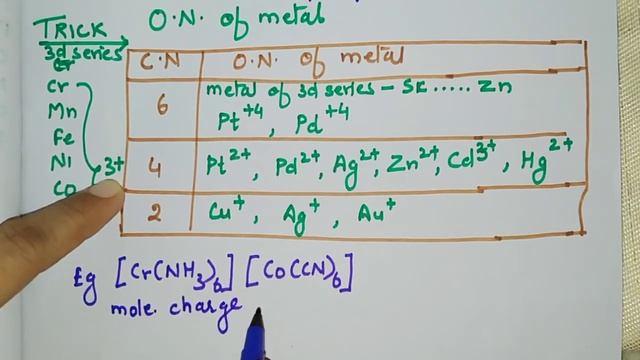 TRICK
O.N. of metal
3d series
Cr
Cr
Mn
Fe
Ni
Co
3+
C.N O.N. of metal
6 metal of 3d series - Sc ..... Zn
Pt+4, Pd+4
4 Pt2+, Pd2+, Ag2+, Zn2+, Cd3+, Hg2+
2 Cu+, Ag+, Au+
Eg [Cr(NH3)6] [Co(CN)6]
mole. charge